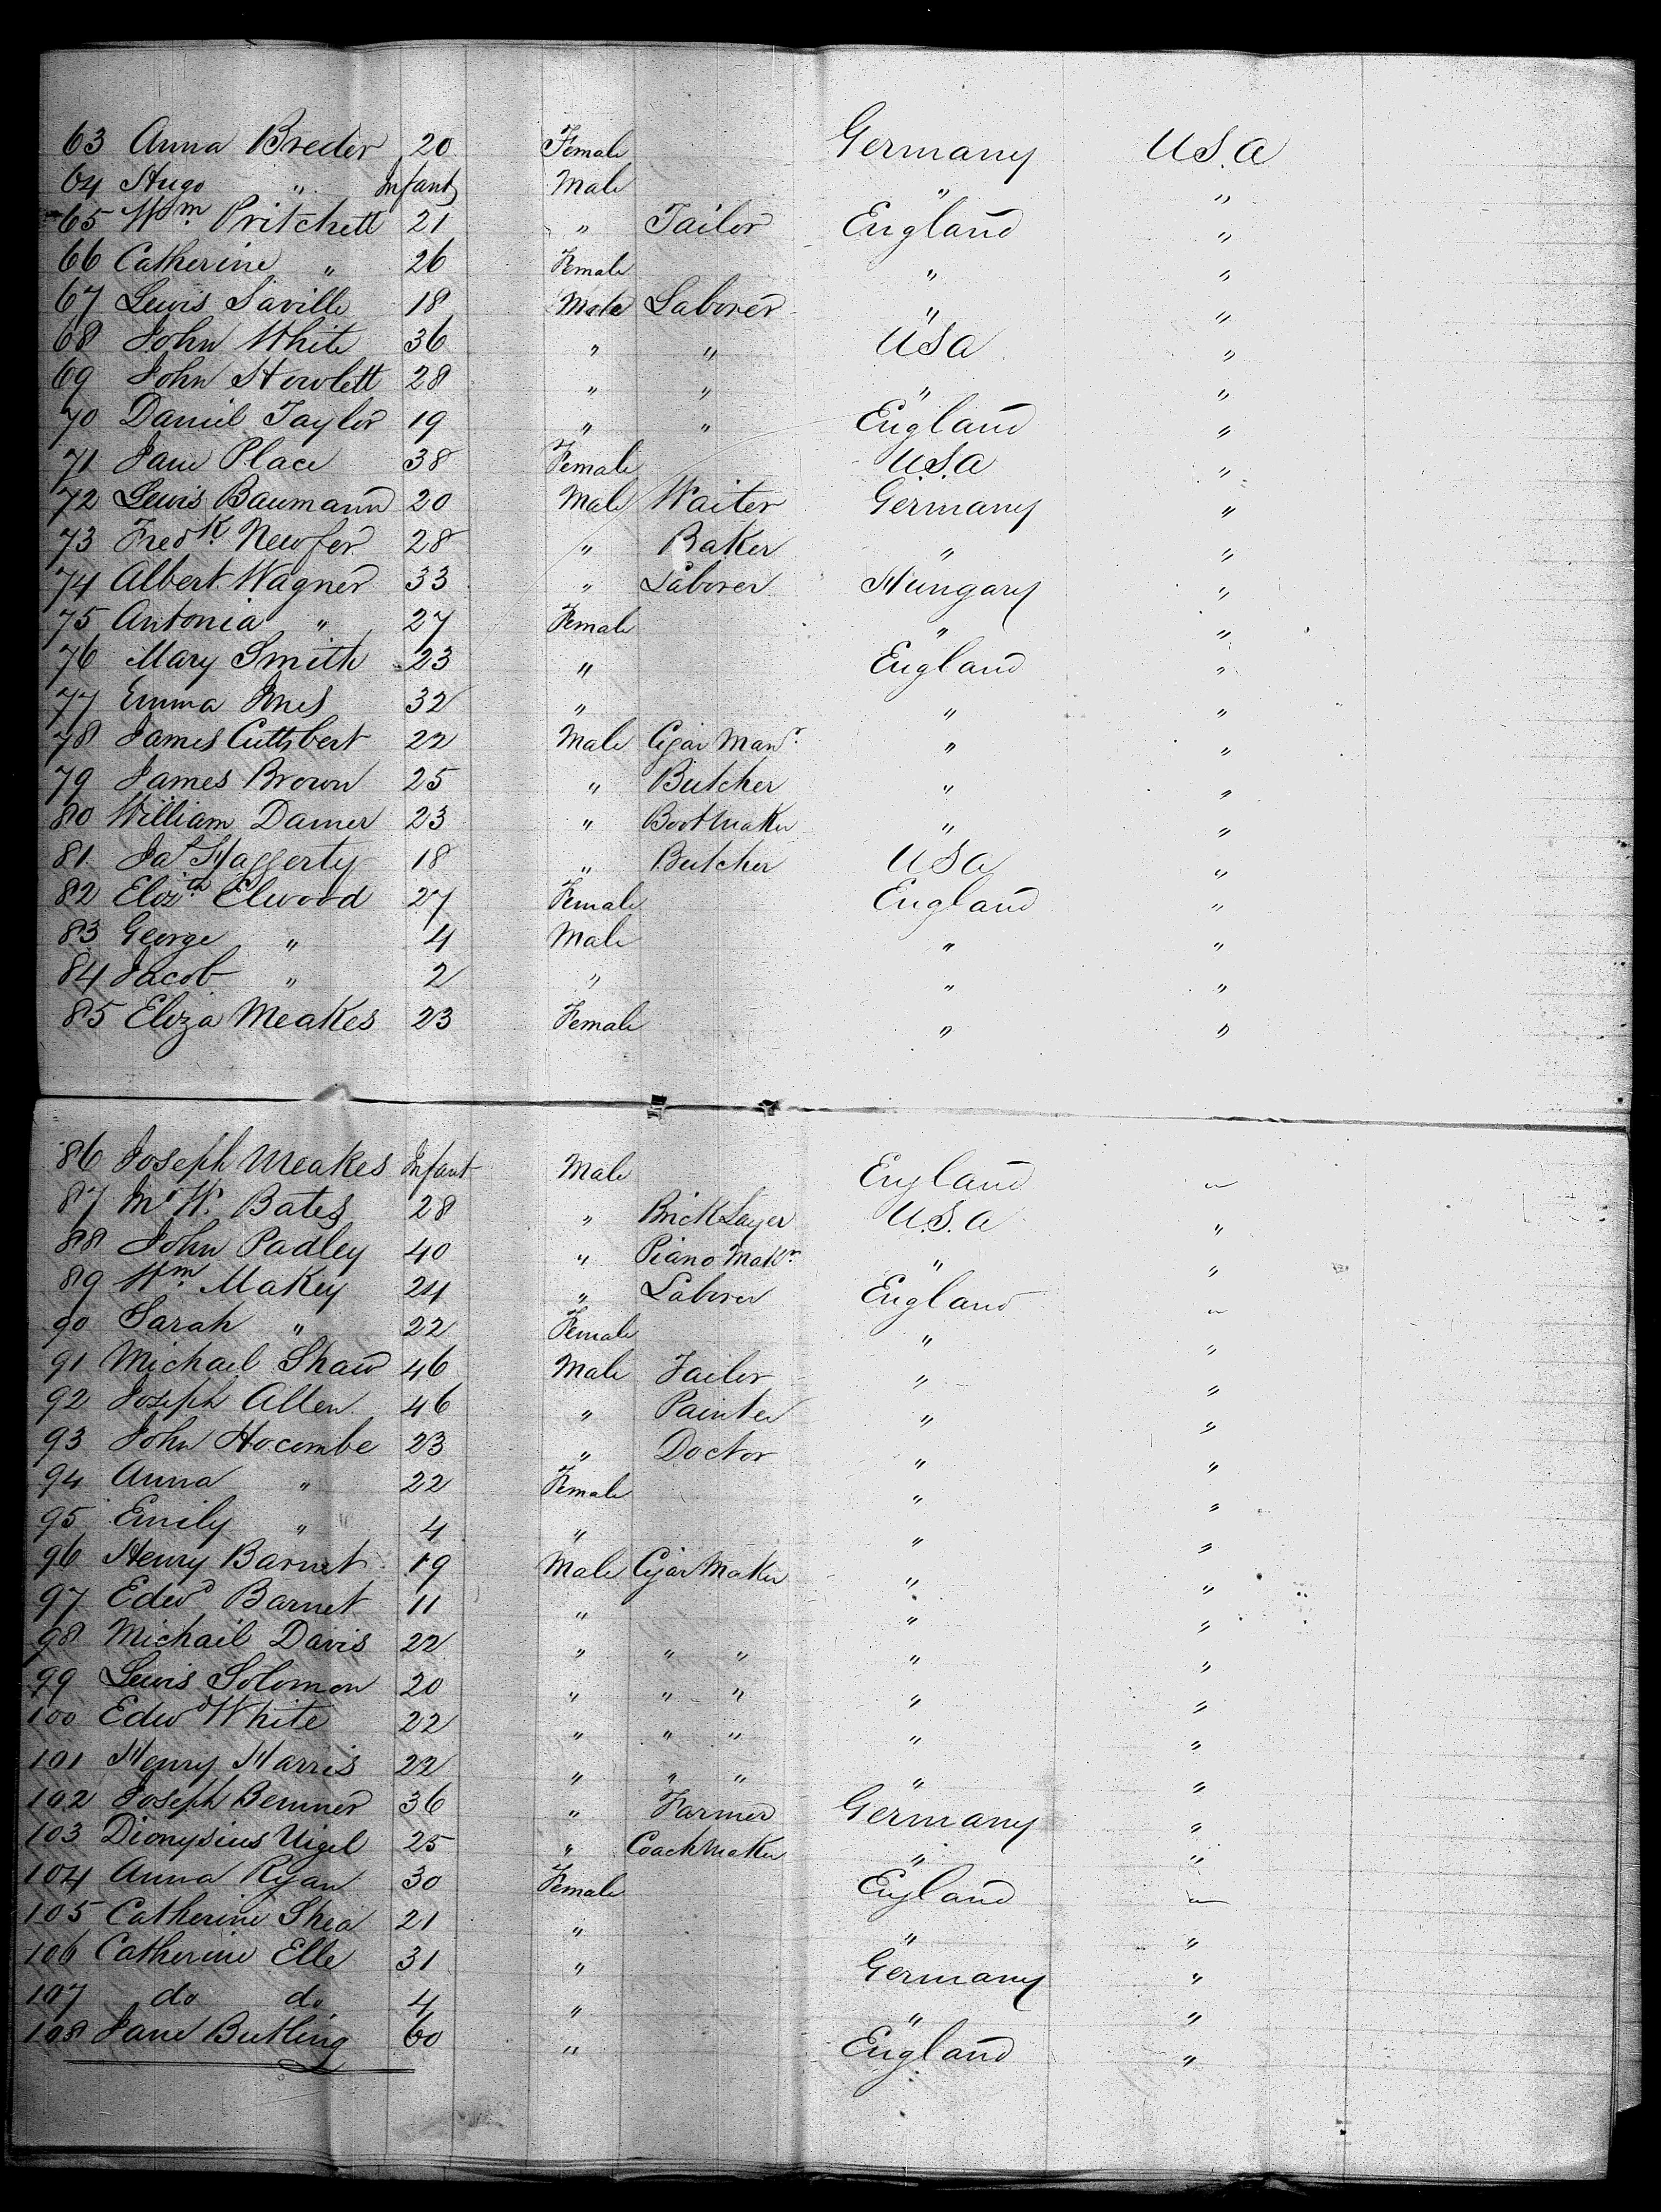 63 Anna Breder 20 Female Germany U.S.A
64 Hugo " Infant Male " "
65 Wm. Pritchett 21 " Tailor England "
66 Catherine " 26 Female " "
67 Lewis Saville 18 Male Laborer " "
68 John White 36 " " USA "
69 John Howlett 28 " " " "
70 Daniel Taylor 19 " " England "
71 Jane Place 38 Female U.S.A "
72 Lewis Baumann 20 Male Waiter Germany "
73 Fredk. Newfer 28 " Baker " "
74 Albert Wagner 33 " Laborer Hungary "
75 Antonia " 27 Female " "
76 Mary Smith 23 " England "
77 Emma Jones 32 " " "
78 James Cuttsbert 22 Male Cigar Manr. " "
79 James Brown 25 " Butcher " "
80 William Damer 23 " Bootmaker " "
81 Jas Haggerty 18 " Butcher USA "
82 Elizth Elwood 27 Female England "
83 George " 4 Male " "
84 Jacob " 2 " " "
85 Eliza Meakes 23 Female " "
86 Joseph Meakes Infant Male England "
87 Mr W. Bates 28 " Brick Layer U.S.A "
88 John Padley 40 " Piano Makr. " "
89 Wm. Makey 24 " Laborer England "
90 Sarah " 22 Female " "
91 Michael Shaw 46 Male Tailor " "
92 Joseph Allen 46 " Painter " "
93 John Hocombe 23 " Doctor " "
94 Anna " 22 Female " "
95 Emily " 4 " " "
96 Henry Barnet 19 Male Cigar Maker " "
97 Edwd Barnet 11 " " "
98 Michail Davis 22 " " " " "
99 Lewis Solomon 20 " " " " "
100 Edwd White 22 " " " " "
101 Henry Harris 22 " " " " "
102 Joseph Bemner 36 " Farmer Germany "
103 Dionysius Uigel 25 " Coachmaker " "
104 Anna Ryan 30 Female England "
105 Catherine Shea 21 " " "
106 Catherine Elle 31 " Germany "
107 do do 4 " " "
108 Jane Butling 60 " England "